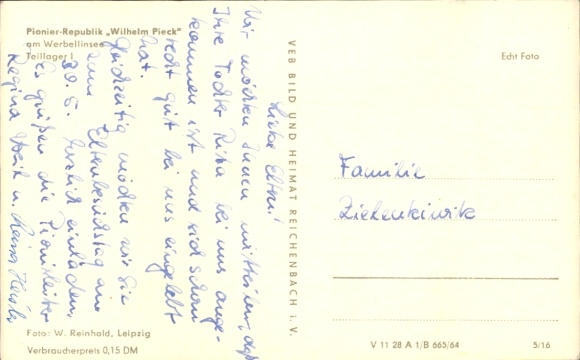 Pionier-Republik „Wilhelm Pieck"
am Werbellinsee
Teillager I
Liebe Eltern!
Wir möchten Ihnen mitteilen, daß
Ihre Tochter bei uns ange-
kommen ist und sich schon
recht gut bei uns eingelebt
hat.
Gleichzeitig möchten wir Sie
zum Elternbesuchstag am
herzlich einladen.
Es grüßen die Pionierleiter
Regina u.
Foto: W. Reinhold, Leipzig
Verbraucherpreis 0,15 DM
VEB BILD UND HEIMAT REICHENBACH i. V.
Echt Foto
Familie
V 11 28 A 1/B 665/64
5/16